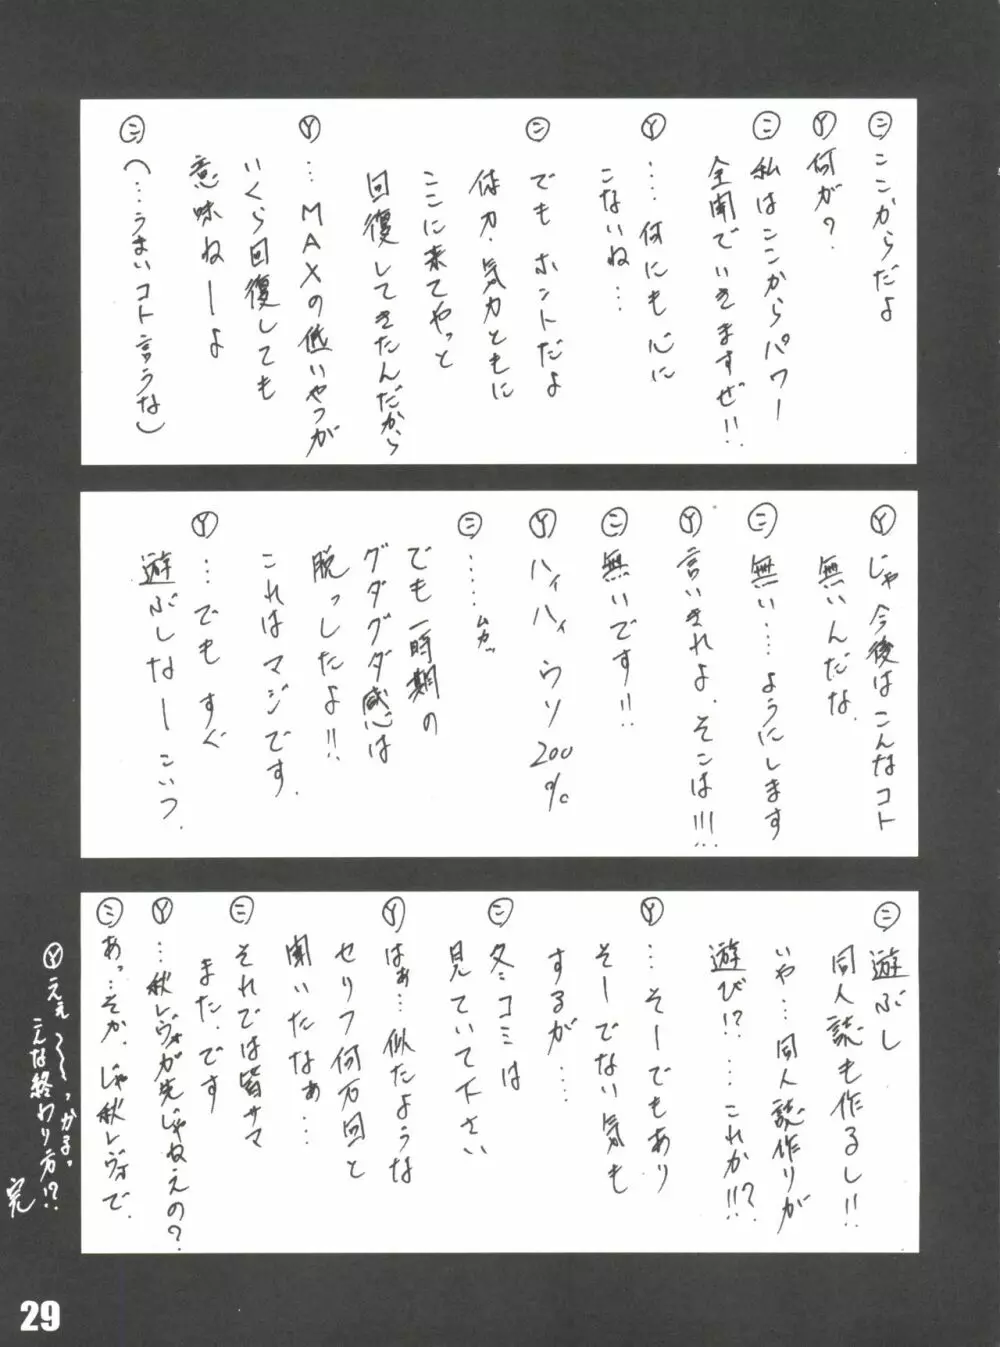 ㊁ ここからだよ
Ⓨ 何が?
㊁ 私はここからパワー
全開でいきますぜ!!
Ⓨ ‥‥何にも心に
こないね‥‥
㊁ でもホントだよ
体力・気力ともに
ここに来てやっと
回復してきたんだから
Ⓨ …MAXの低いやつが
いくら回復しても
意味ねーよ
㊁ (…うまいコト言うな)
Ⓨ じゃ今後はこんなコト
無いんだな.
㊁ 無い‥‥ようにします
Ⓨ 言いきれよ.そこは!!!
㊁ 無いです!!
Ⓨ ハイハイ ウソ200%
㊁ ………ムカッ
でも一時期の
グダグダ感は
脱っしたよ!!
これはマジです.
Ⓨ …でもすぐ
遊ぶしなーこいつ.
㊁ 遊ぶし
同人誌も作るし!!
いや…同人誌作りが
遊び!?‥‥これか!!?
Ⓨ …そーでもあり
そーでない気も
するが‥‥
㊁ 冬コミは
見ていて下さい
Ⓨ はぁ…似たような
セリフ何万回と
聞いたなぁ…
㊁ それでは皆サマ
また.です
Ⓨ …秋レヴォが先じゃねえの?
㊁ あっ…そか.じゃ秋レヴォで.
Ⓨ ええ〜〜っかる。
こんな終わり方!?
完
29